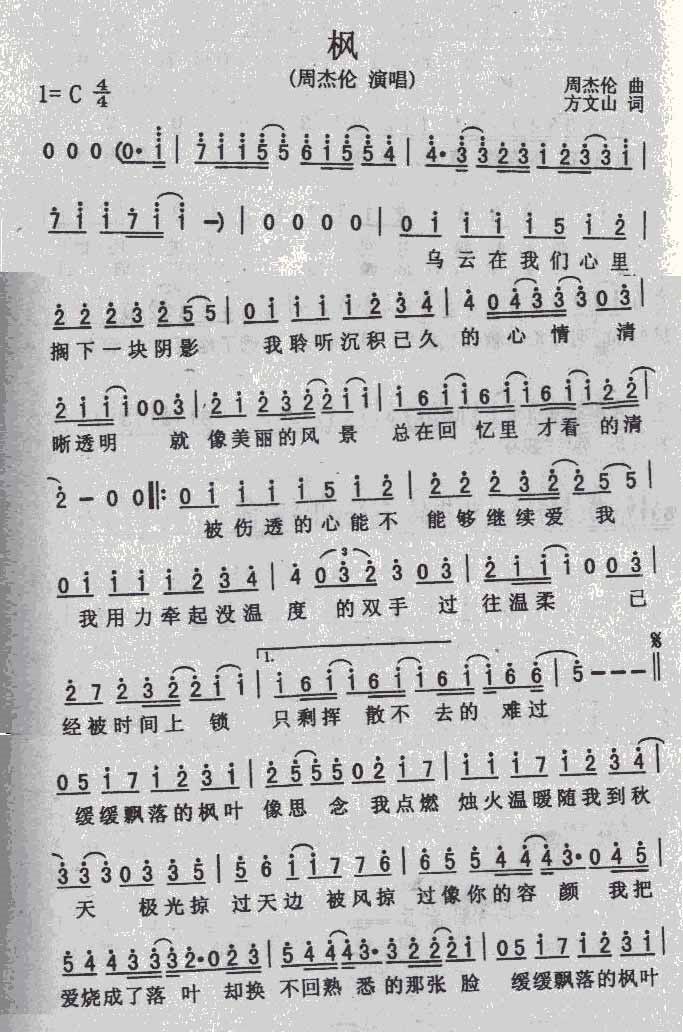 枫
(周杰伦 演唱)
1= C 4/4
周杰伦 曲
方文山 词
0 0 0 (0· i | 7 i i 5 5 6 i 5 5 4 | 4· 3 3 2 3 i 2 3 3 i |
7 i i 7 i i —) | 0 0 0 0 | 0 i i i i 5 i 2 |
乌云在我们心里
2 2 2 3 2 5 5 | 0 i i i i 2 3 4 | 4 0 4 3 3 3 0 3 |
搁下一块阴影 我聆听沉积已久 的 心 情 清
2 i i i 0 0 3 | 2 i 2 3 2 2 i i | i 6 i i 6 i i 6 i i 2 2 |
晰透明 就 像美丽的风 景 总在回 忆里 才看 的清
2 — 0 0 ‖: 0 i i i i 5 i 2 | 2 2 2 3 2 2 5 5 |
被伤透的心能不 能够继续爱 我
0 i i i i 2 3 4 | 4 0 3 2 3 0 3 | 2 i i i 0 0 3 |
我用力牵起没温 度 的双手 过 往温柔 已
2 7 2 3 2 2 i i | 1. i 6 i i 6 i i 6 i i 6 6 | 5 - - - ‖
经被时间上 锁 只剩挥 散不 去的 难过
0 5 i 7 i 2 3 i | 2 5 5 5 0 2 i 7 | i i i 7 i 2 3 4 |
缓缓飘落的枫叶 像思 念 我点燃 烛火温暖随我到秋
3 3 3 0 3 3 5 | 5 6 i i 7 7 6 | 6 5 5 4 4 4 3· 0 4 5 |
天 极光掠 过天边 被风掠 过像你的容 颜 我把
5 4 4 3 3 3 2· 0 2 3 | 5 4 4 4 3· 3 2 2 2 i | 0 5 i 7 i 2 3 i |
爱烧成了落 叶 却换 不回熟 悉的那张 脸 缓缓飘落的枫叶